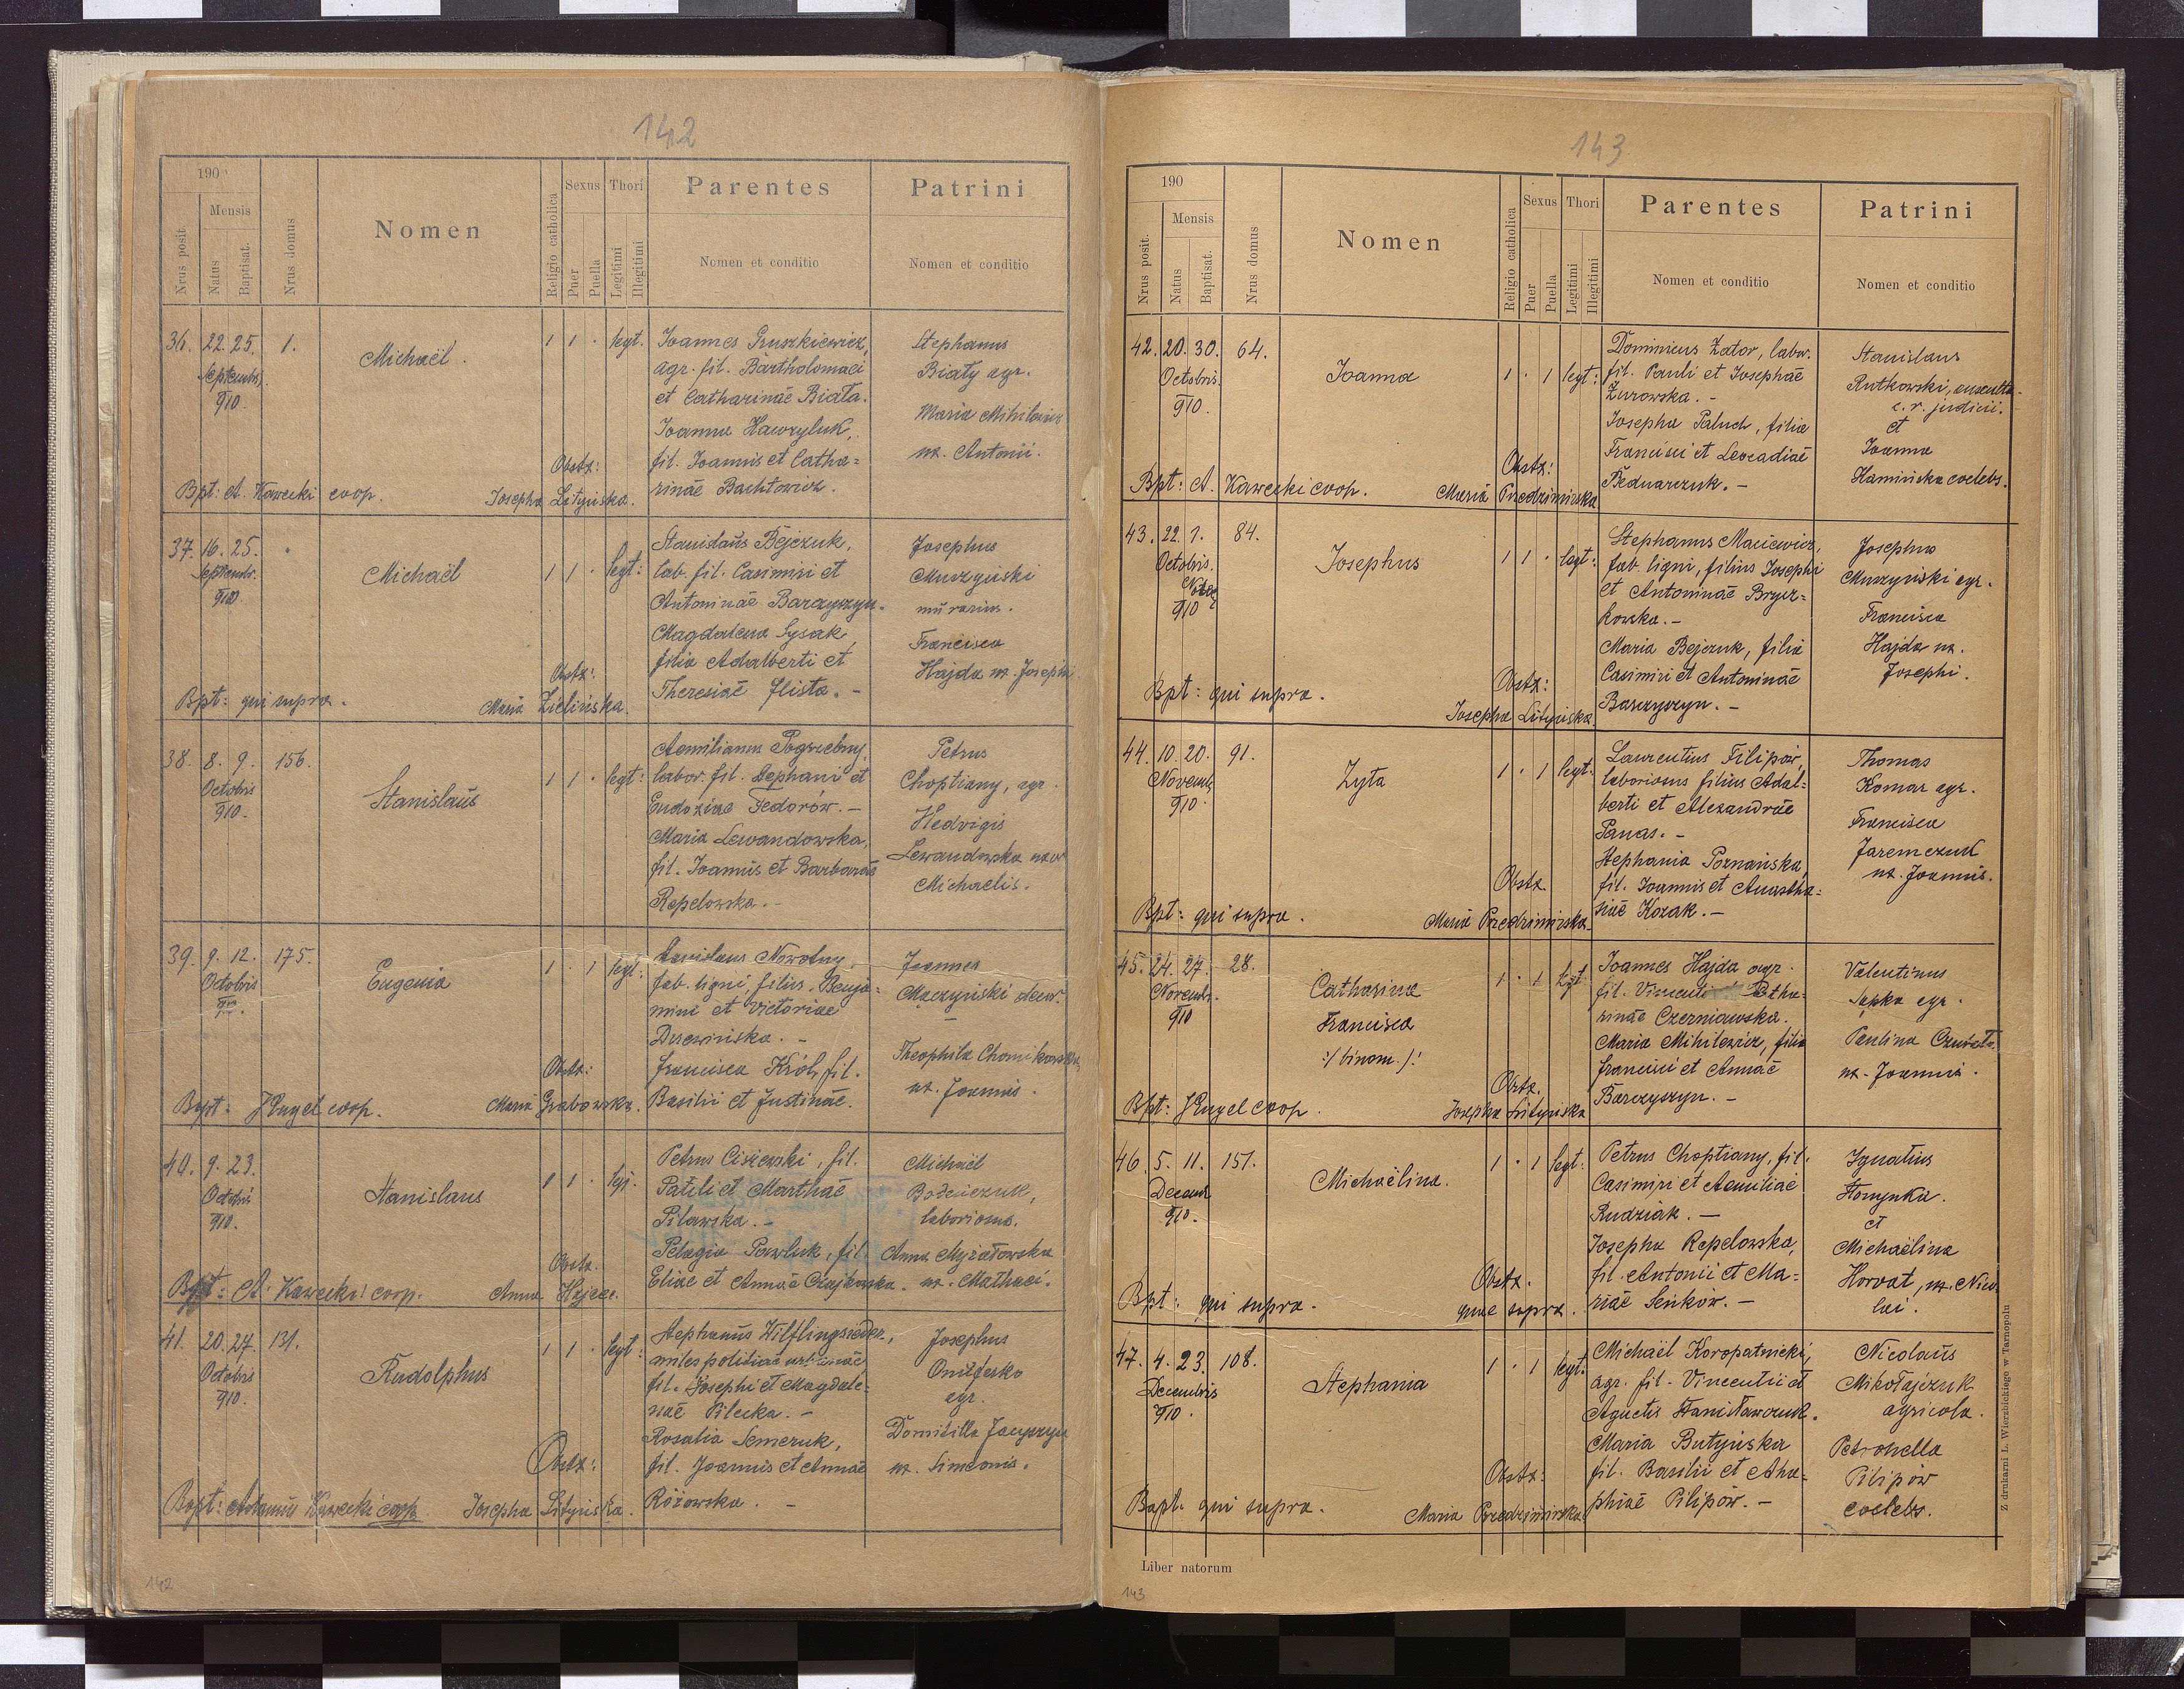 142
190
Nrus posit.
Mensis
Natus
Baptisat.
Nrus domus
Nomen
Religio catholica
Sexus
Puer
Puella
Thori
Legitimi
Illegitimi
Parentes
Nomen et conditio
Patrini
Nomen et conditio
36. 22. 25. 1.
Septembr.
910.
Michaël.
1 1 · legt.
Joannes Gruszkiewicz,
agr. fil. Bartholomaei
et Catharinae Biała.
Joanna Hawryluk,
fil. Joannis et Catha=
rinae Bachtowicz.
Stephanus
Biały agr.
Maria Mihilewicz
ux. Antonii.
Obstx:
Bpt: A. Kawecki coop. Josepha Lityńska.
37. 16. 25. ·
Septembr.
910.
Michaël
1 1 · legt:
Stanislaus Bejczuk,
lab. fil. Casimiri et
Antoninae Barczyszyn.
Magdalena Sysak,
filia Adalberti et
Theresiae Glista. -
Josephus
Muszyński
murarius.
Francisca
Hajda ux. Josephi
Obstx:
Bpt: qui supra. Maria Zielińska.
38. 8. 9. 156.
Octobris
910.
Stanislaus
1 1 · legt:
Aemilianus Pogrzebny,
labor. fil. Stephani et
Eudoxiae Fedorów. -
Maria Lewandowska,
fil. Joannis et Barbarae
Repelowska. -
Petrus
Choptiany, agr.
Hedvigis
Lewandowska uxor
Michaelis.
39. 9. 12. 175.
Octobris
910.
Eugenia
1 · 1 legt:
Stanislaus Nowotny,
fab. ligni, filius Benja=
mini et Victoriae
Drewińska. -
Francisca Król, fil.
Basilii et Justinae.
Joannes
Maczyński
Theophila Chomikowska
ux. Joannis.
Obstx:
Bapt: J Engel coop. Maria Grabowska.
40. 9. 23.
Octobris
910.
Stanislaus
1 1 · legt.
Petrus Ciszewski, fil.
Pauli et Marthae
Pilawska. -
Pelagia Pawluk, fil.
Eliae et Annae Czajkowska.
Michaël
laboriosus.
Anna
ux. Mathaei.
Obstx.
Bapt: A. Kawecki coop. Anna Hejcer.
41. 20. 27. 131.
Octobris
910.
Rudolphus
1 1 · legt:
Stephanus Wilflingseder,
miles politiae urbanae
fil. Josephi et Magdale=
nae Pilecka. -
Rosalia Semczuk,
fil. Joannis et Annae
Różowska. -
Josephus
Onifesko
agr.
Domitilla Jacyszyn
ux. Simeonis.
Obstx:
Bapt: Adamus Kawecki coop. Josepha Lityńska.
142
143
190
Nrus posit.
Mensis
Natus
Baptisat.
Nrus domus
Nomen
Religio catholica
Sexus
Puer
Puella
Thori
Legitimi
Illegitimi
Parentes
Nomen et conditio
Patrini
Nomen et conditio
42. 20. 30. 64.
Octobris.
910.
Joanna
1 · 1 legt:
Dominicus Zator, labor.
fil. Pauli et Josephae
Żurowska. -
Josepha Paluch, filia
Francisci et Leocadiae
Bednarczuk. -
Stanislaus
Rutkowski, ausculta-
c. r. judicii.
et
Joanna
Kamińska coelebs.
Obstx:
Bpt: A. Kawecki coop. Maria Przedzimirska
43. 22. 1. 84.
Octobris.
Nov.
910
Josephus
1 1 · legt:
Stephanus Maciewicz,
fab. ligni, filius Josephi
et Antoninae Brycz=
kowska. -
Maria Bejczuk, filia
Casimiri et Antoninae
Barczyszyn. -
Josephus
Muszyński agr.
Francisca
Hajda ux.
Josephi.
Obstx:
Bpt: qui supra. Josepha Lityńska
44. 10. 20. 91.
Novemb.
910.
Zyta
1 · 1 legt.
Laurentius Filipów,
laboriosus filius Adal=
berti et Alexandrae
Panas. -
Stephania Poznańska,
fil. Joannis et Anastha=
siae Kozak. -
Thomas
Komar agr.
Francisca
Jaremczuk
ux. Joannis.
Obstx.
Bpt: qui supra. Maria Przedzimirska.
45. 24. 27. 28.
Novembr.
910
Catharina
Francisca
:/ binom. /:
1 · 1 legt.
Joannes Hajda agr.
fil. Vincentii Catha=
rinae Czerniawska.
Maria Mihilewicz, filia
Francisci et Annae
Barczyszyn. -
Valentinus
Sapka agr.
Paulina
ux. Joannis.
Obstx.
Bpt: J Engel coop. Josepha Lityńska
46. 5. 11. 151.
Decemb.
910.
Michaëlina.
1 · 1 legt:
Petrus Choptiany, fil.
Casimiri et Aemiliae
Rudziak. -
Josepha Repelowska,
fil. Antonii et Ma=
riae Seńków. -
Ignatius
Homynka.
et
Michaëlina
Horvat, ux. Nico
lai.
Obstx.
Bpt: qui supra. quae supra.
47. 4. 23. 108.
Decembris
910.
Stephania
1 · 1 legt:
Michaël Koropatnicki,
agr. fil. Vincentii et
Agnetis Stanisławczuk.
Maria Butyńska
fil. Basilii et Aha=
phiae Pilipów. -
Nicolaus
Mikołajczuk
agricola.
Petronella
Pilipów
coelebs.
Obstx:
Bapt. qui supra. Maria Przedzimirska
Liber natorum
Z drukarni L. Wierzbickiego w Tarnopolu
143